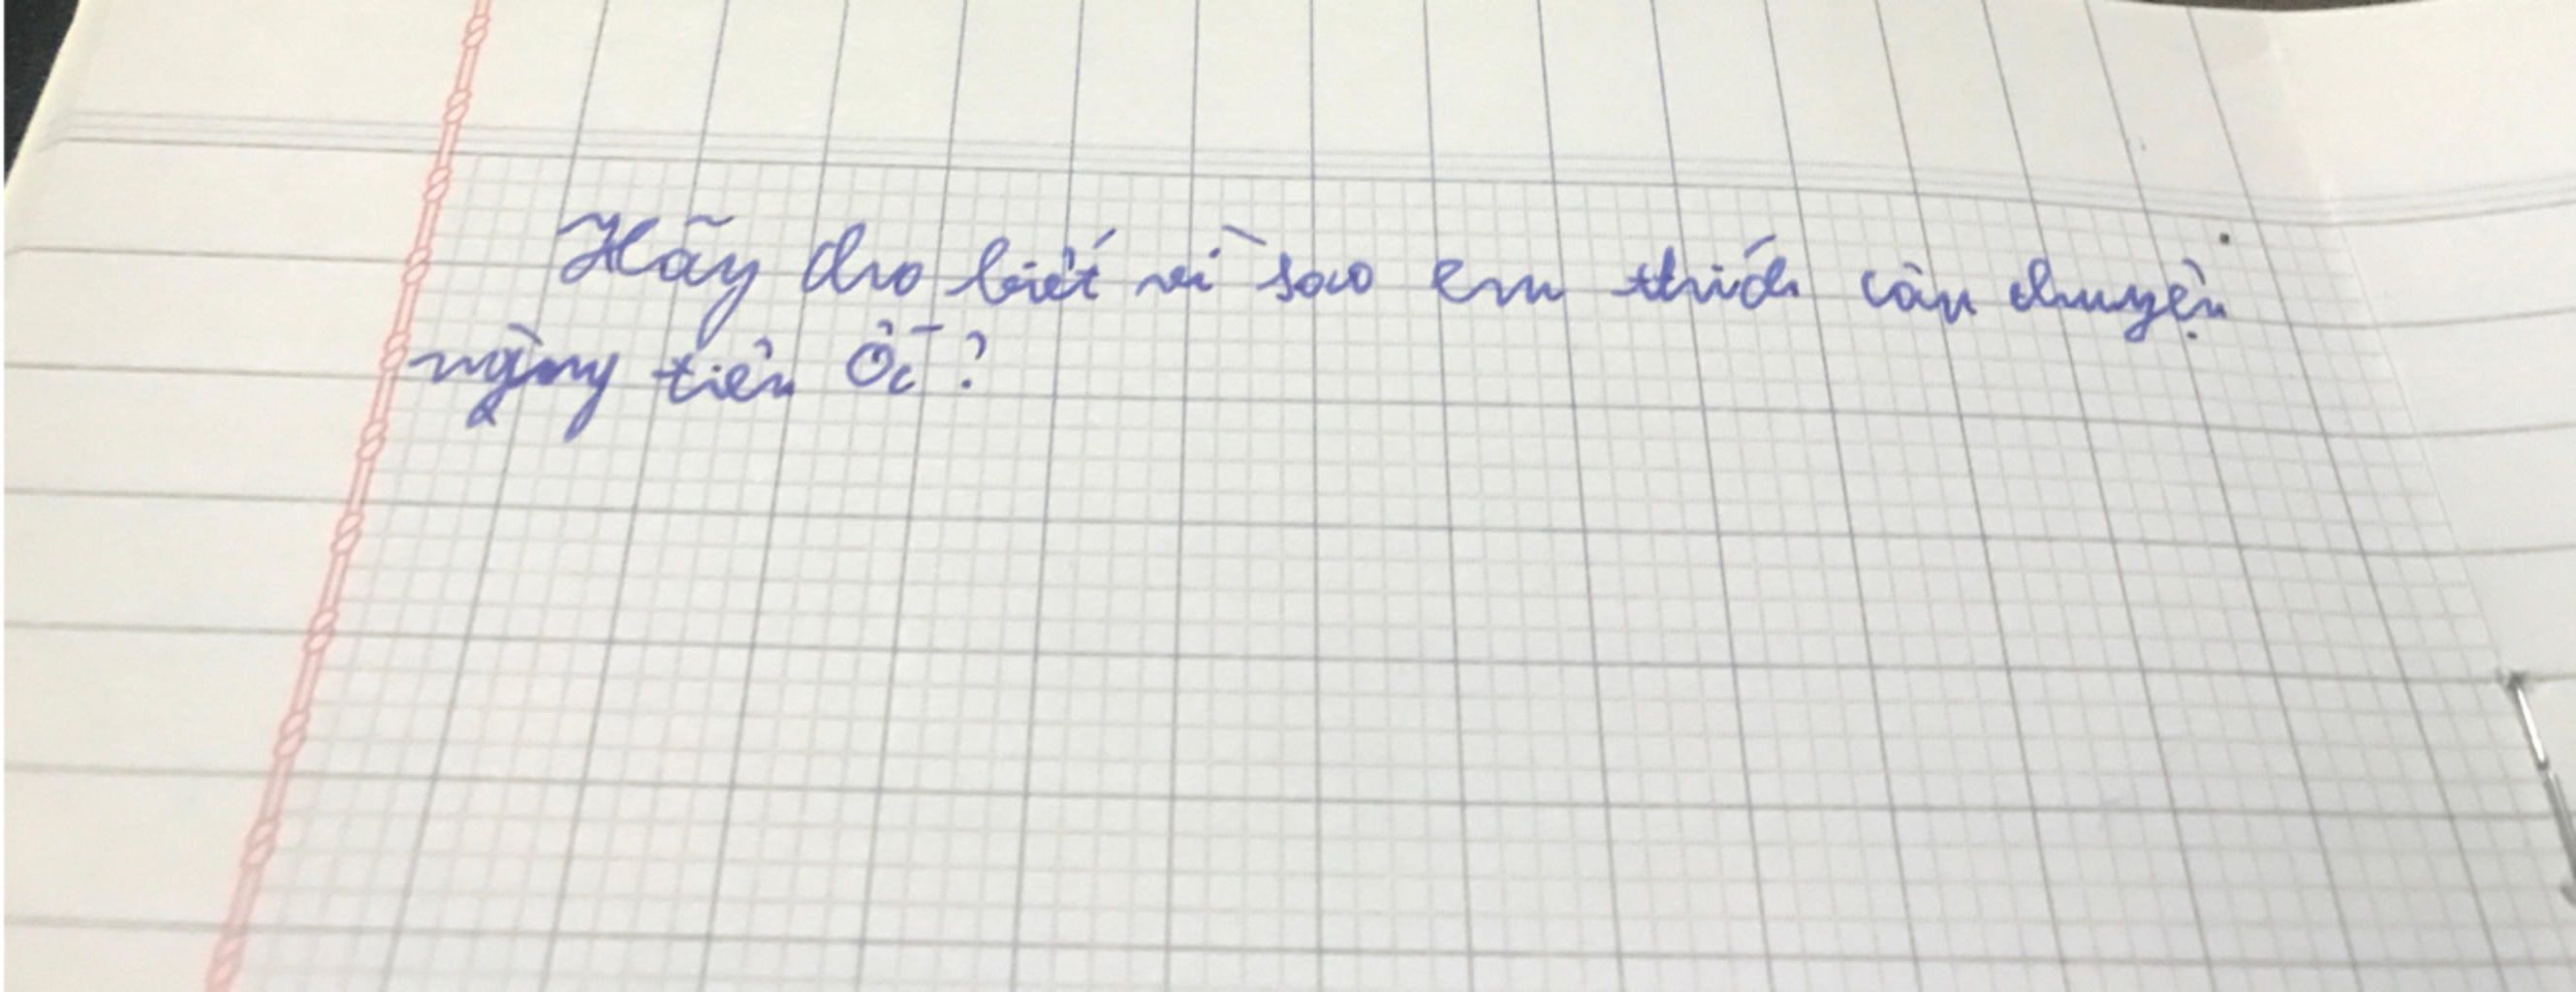 Hãy cho biết vì sao em thích câu chuyện
nàng tiên Ốc ?